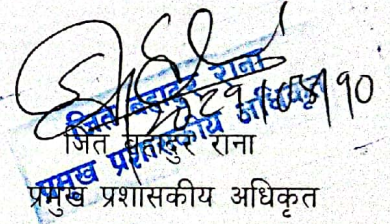 जित बहादुर राना
प्रमुख प्रशासकीय अधिकृत
जित बहादुर राना
प्रमुख प्रशासकीय अधिकृत